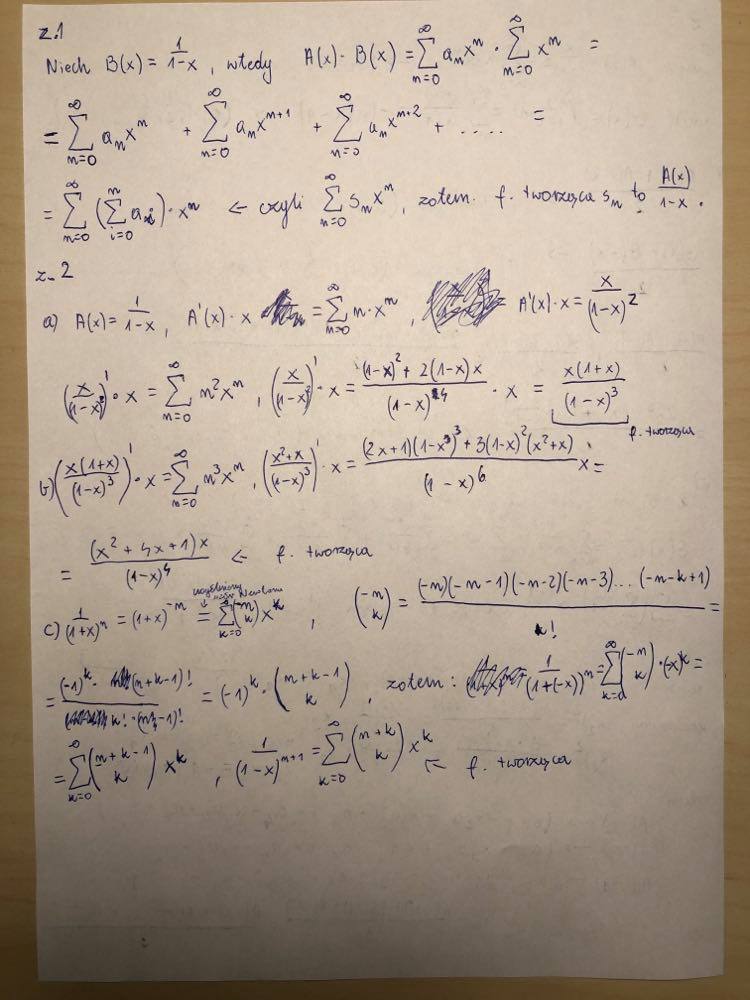 z.1
Niech B(x) = \frac{1}{1-x}, wtedy A(x)·B(x) = \sum_{n=0}^{∞} a_n x^n · \sum_{n=0}^{∞} x^n =
= \sum_{n=0}^{∞} a_n x^n + \sum_{n=0}^{∞} a_n x^{n+1} + \sum_{n=0}^{∞} a_n x^{n+2} + .... =
= \sum_{n=0}^{∞} (\sum_{i=0}^{n} a_i)·x^n ← czyli \sum_{n=0}^{∞} s_n x^n, zatem f. tworząca s_n to \frac{A(x)}{1-x}.
z.2
a) A(x) = \frac{1}{1-x}, A'(x)·x = \sum_{n=0}^{∞} n·x^n, A'(x)·x = \frac{x}{(1-x)^2}
(\frac{x}{(1-x)^2})'·x = \sum_{n=0}^{∞} n^2 x^n, (\frac{x}{(1-x)^2})'·x = \frac{(1-x)^2+2(1-x)x}{(1-x)^4}·x = \frac{x(1+x)}{(1-x)^3}
f. tworząca
b) (\frac{x(1+x)}{(1-x)^3})'·x = \sum_{n=0}^{∞} n^3 x^n, (\frac{x^2+x}{(1-x)^3})'·x = \frac{(2x+1)(1-x)^3+3(1-x)^2(x^2+x)}{(1-x)^6}·x =
= \frac{(x^2+4x+1)x}{(1-x)^4} ← f. tworząca
c) \frac{1}{(1+x)^n} = (1+x)^{-n} = \sum_{k=0}^{∞} \binom{-n}{k} x^k, \binom{-n}{k} = \frac{(-n)(-n-1)(-n-2)(-n-3)...(-n-k+1)}{k!} =
= \frac{(-1)^k·(n+k-1)!}{k!·(n-1)!} = (-1)^k·\binom{n+k-1}{k}, zatem: \frac{1}{(1+(-x))^n} = \sum_{k=0}^{∞} \binom{-n}{k}·(-x)^k =
= \sum_{k=0}^{∞} \binom{n+k-1}{k} x^k, \frac{1}{(1-x)^{n+1}} = \sum_{k=0}^{∞} \binom{n+k}{k} x^k ← f. tworząca